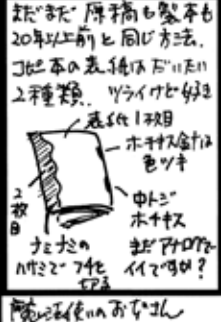 まだまだ 原稿も製本も
20年以上前と同じ方法。
コピー本の表紙はだいたい
2種類。 ツライけど好き
表紙1枚目
ホチキス金は
色ツキ
2枚目
中トジ
ホチキス
ナミナミの
ハサミでフチを
切る
まだアナログで
イイですか?
魔法使いのおなさん